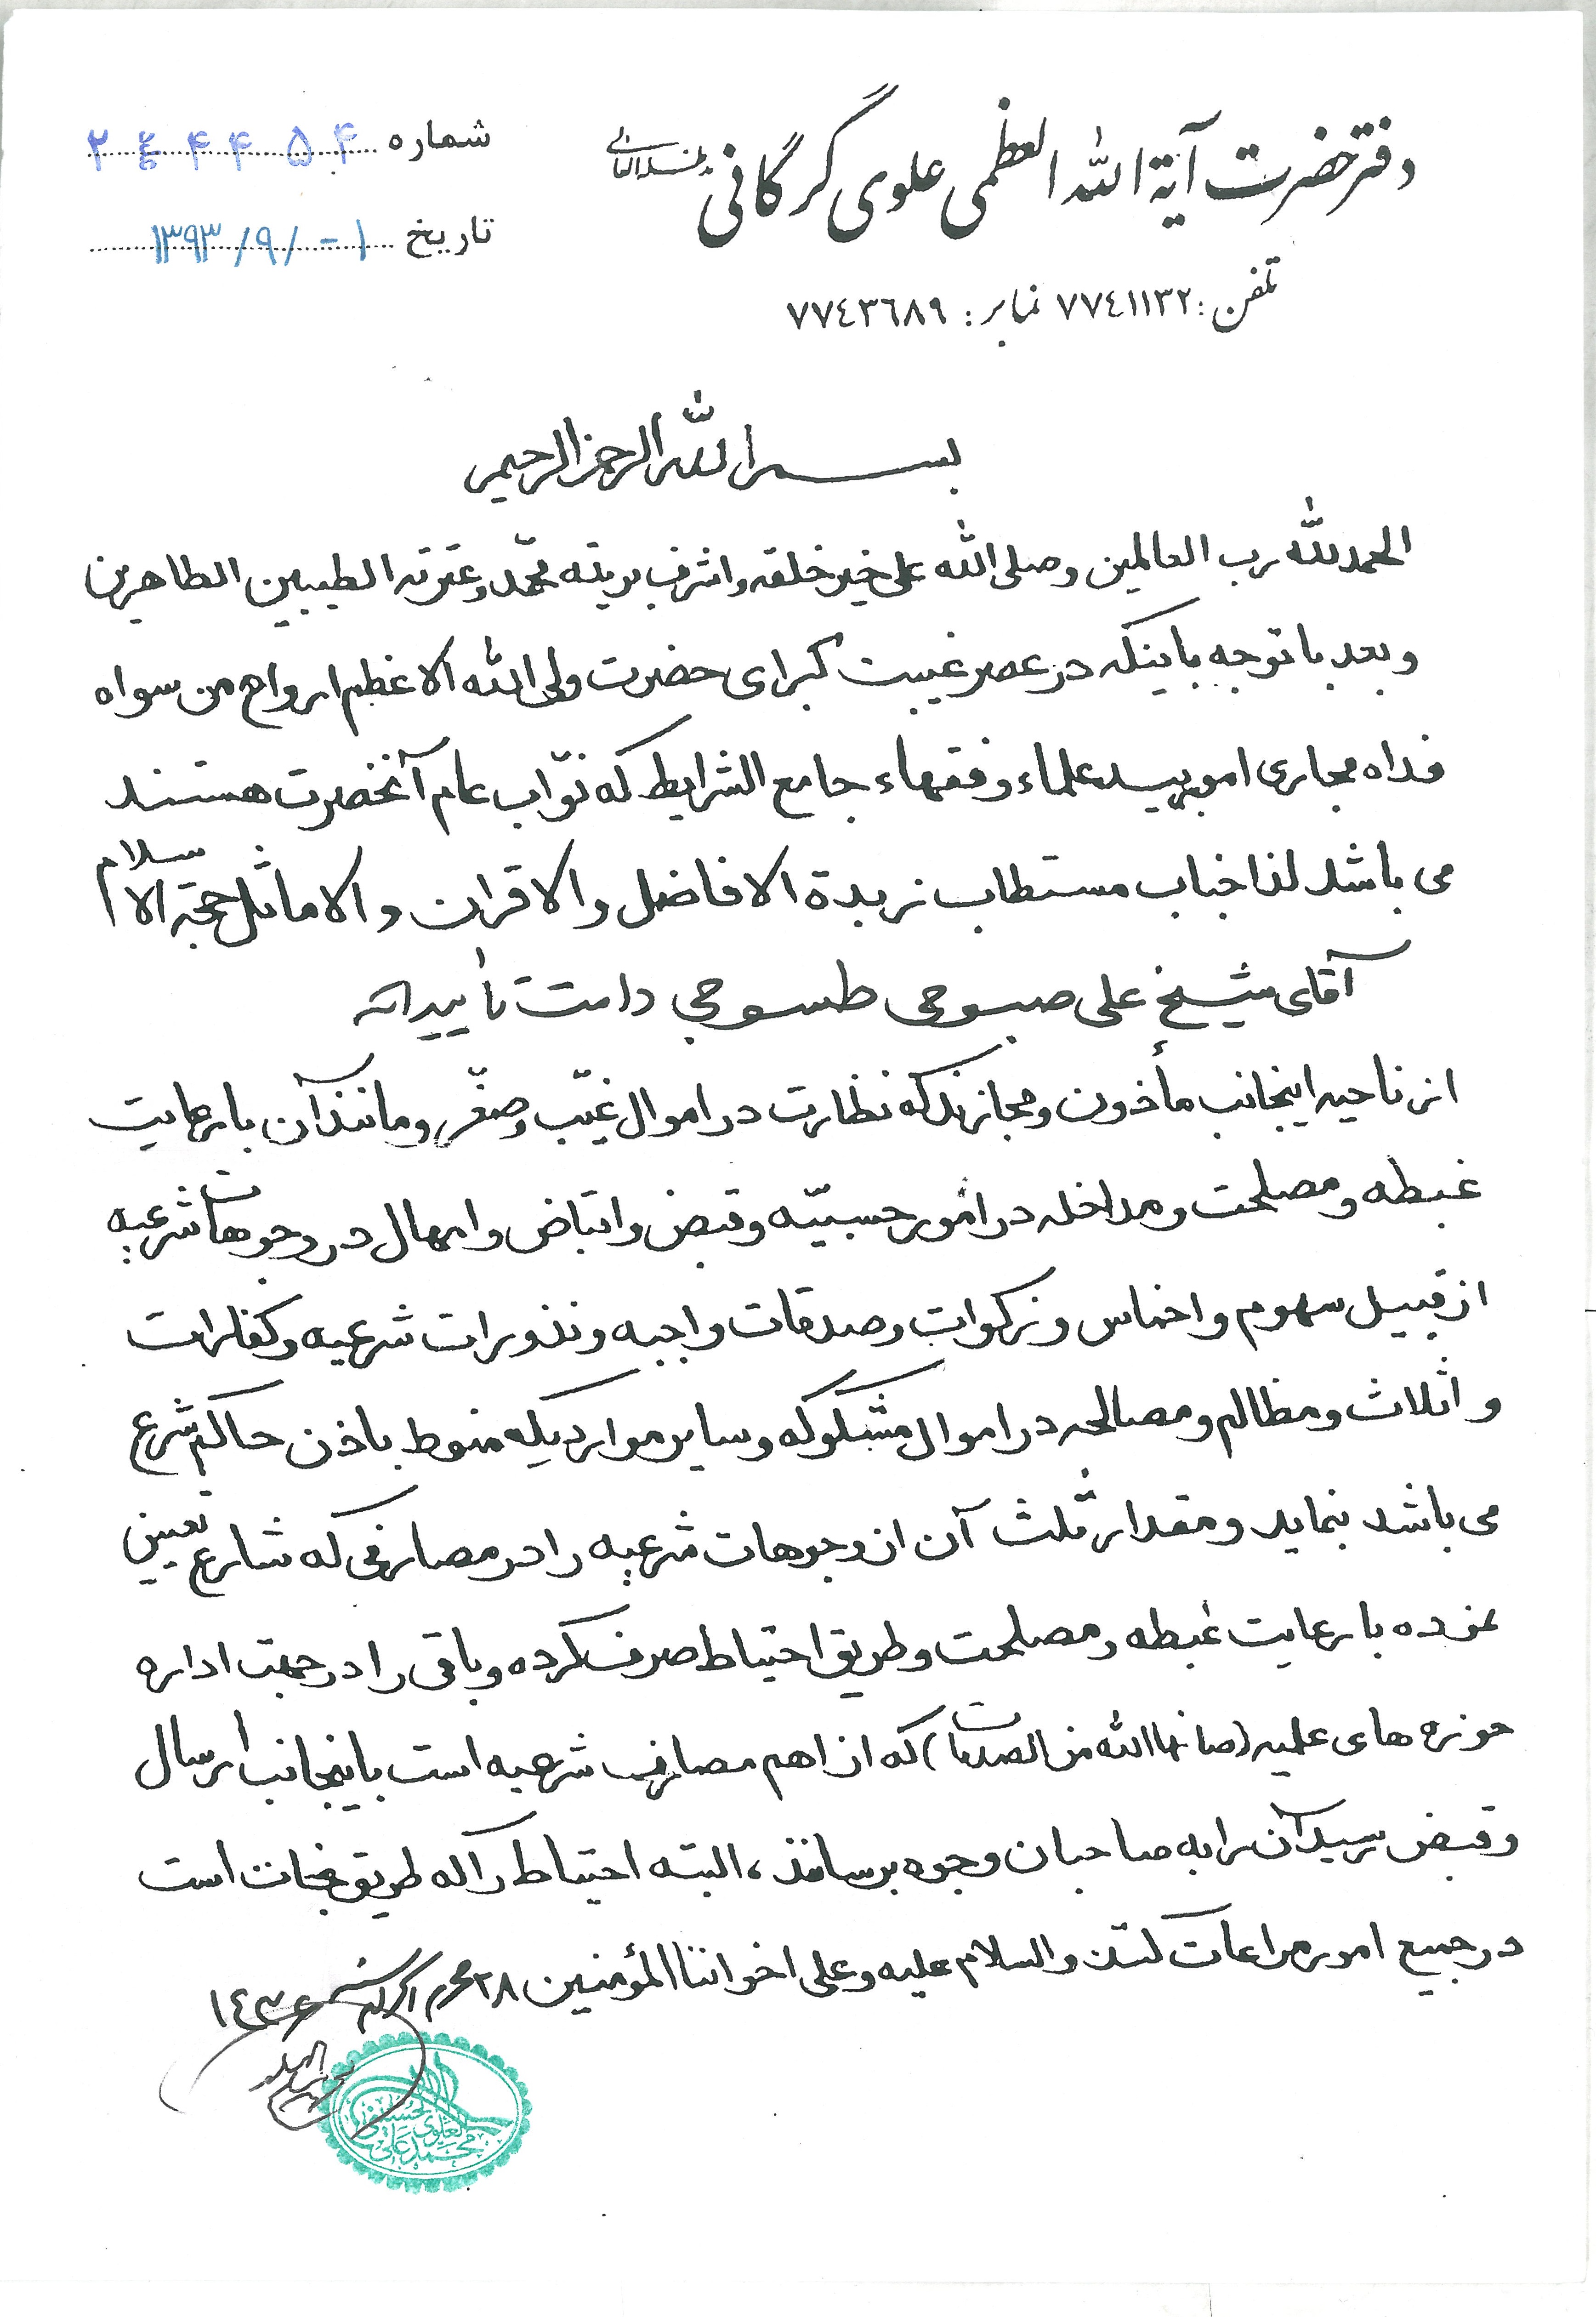 دفتر حضرت آیة الله العظمی علوی گرگانی مدظله العالی
شماره ۲۴۴۴۵۴
تاریخ ۱۳۹۳/۹/۰۱
تلفن: ۷۷٤۱۱۳۲ نمابر: ۷۷٤۳٦۸۹
بسم الله الرحمن الرحیم
الحمدلله رب العالمین وصلی الله علی خیر خلقه واشرف بریته محمّد وعترته الطیبین الطاهرین
وبعد با توجه باینکه در عصر غیبت کبرای حضرت ولی الله الاعظم ارواح من سواه
فداه مجاری امور بید علماء وفقهاء جامع الشرایط که نوّاب عام آنحضرت هستند
می باشد لذا جناب مستطاب زبدة الافاضل والاقران والاماثل حجة الاسلام
آقای شیخ علی صبوحی طسوجی دامت تأییداته
از ناحیه اینجانب مأذون ومجازند که نظارت در اموال غیّب وصغّر ومانند آن با رعایت
غبطه ومصلحت ومداخله در امور حسبیّه وقبض واقباض وامهال در وجوهات شرعیه
از قبیل سهوم واخماس وزکوات وصدقات واجبه ونذورات شرعیه وکفارات
واثلاث ومظالم ومصالحه در اموال مشکوکه وسایر مواردیکه منوط باذن حاکم شرع
می باشد بنماید ومقدار ثلث آن از وجوهات شرعیه را در مصارفی که شارع تعیین
نموده با رعایت غبطه ومصلحت وطریق احتیاط صرف کرده وباقی را در جهت اداره
حوزه های علمیه (صانها الله من الصدمات) که از اهم مصارف شرعیه است باینجانب ارسال
وقبض رسید آن را به صاحبان وجوه برسانند، البته احتیاط را که طریق نجات است
در جمیع امور مراعات کنند والسلام علیه وعلی اخواننا المؤمنین ۲۸ محرم الحرام ۱٤۳٦
محمد علی العلوی الحسینی